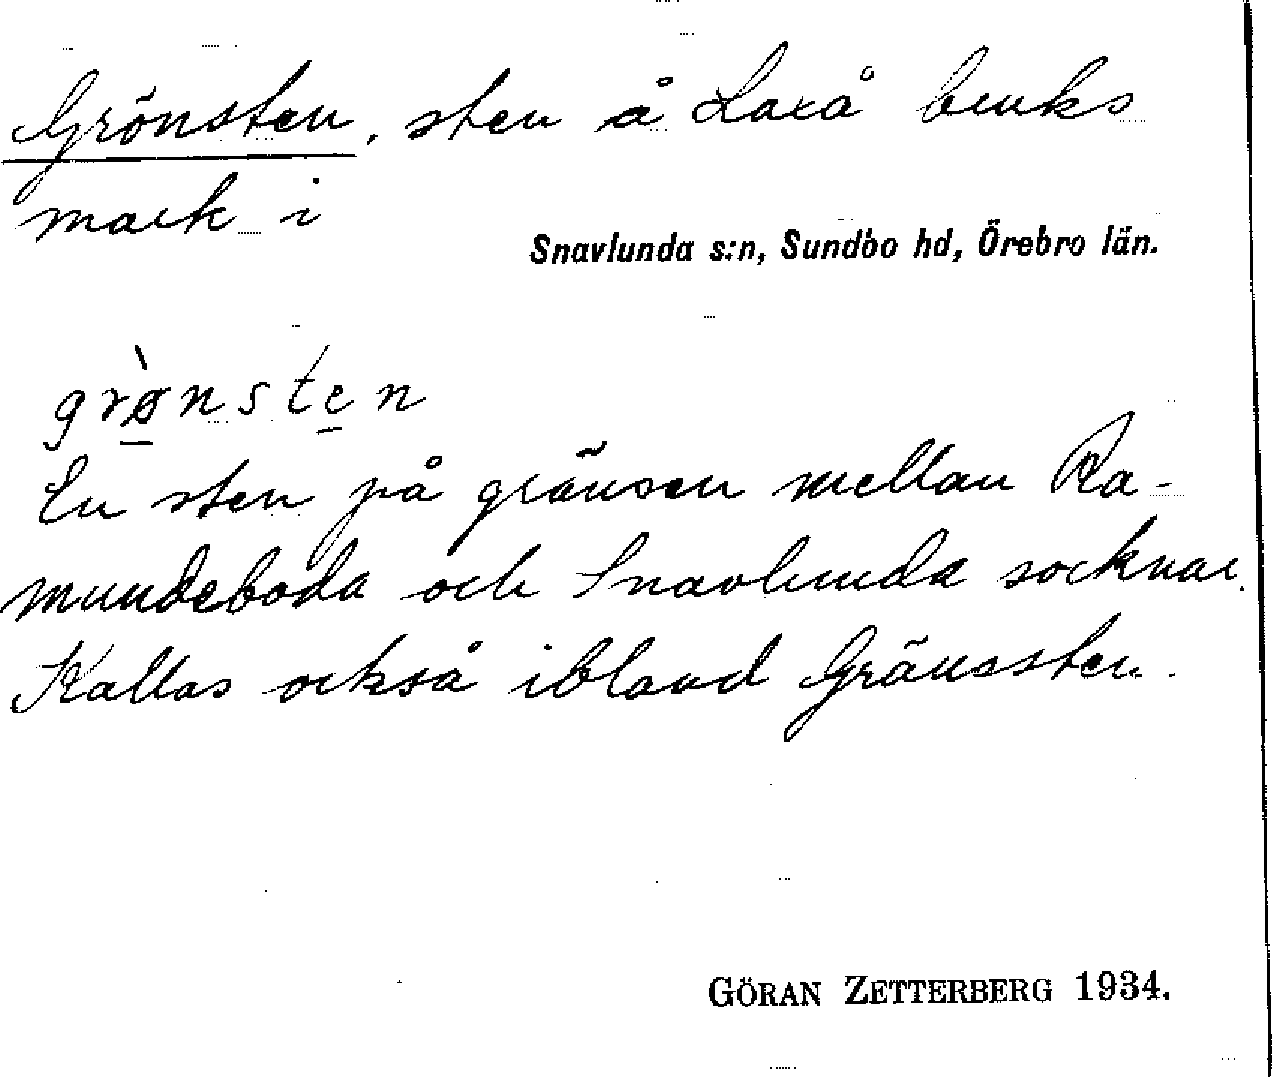 Grönsten, sten å Laxå bruks
mark i
Snavlunda s:n, Sundbo hd, Örebro län.
grø̀nsten
En sten på gränsen mellan Ra-
mundeboda och Snavlunda socknar.
Kallas också ibland Gränssten.
GÖRAN ZETTERBERG 1934.